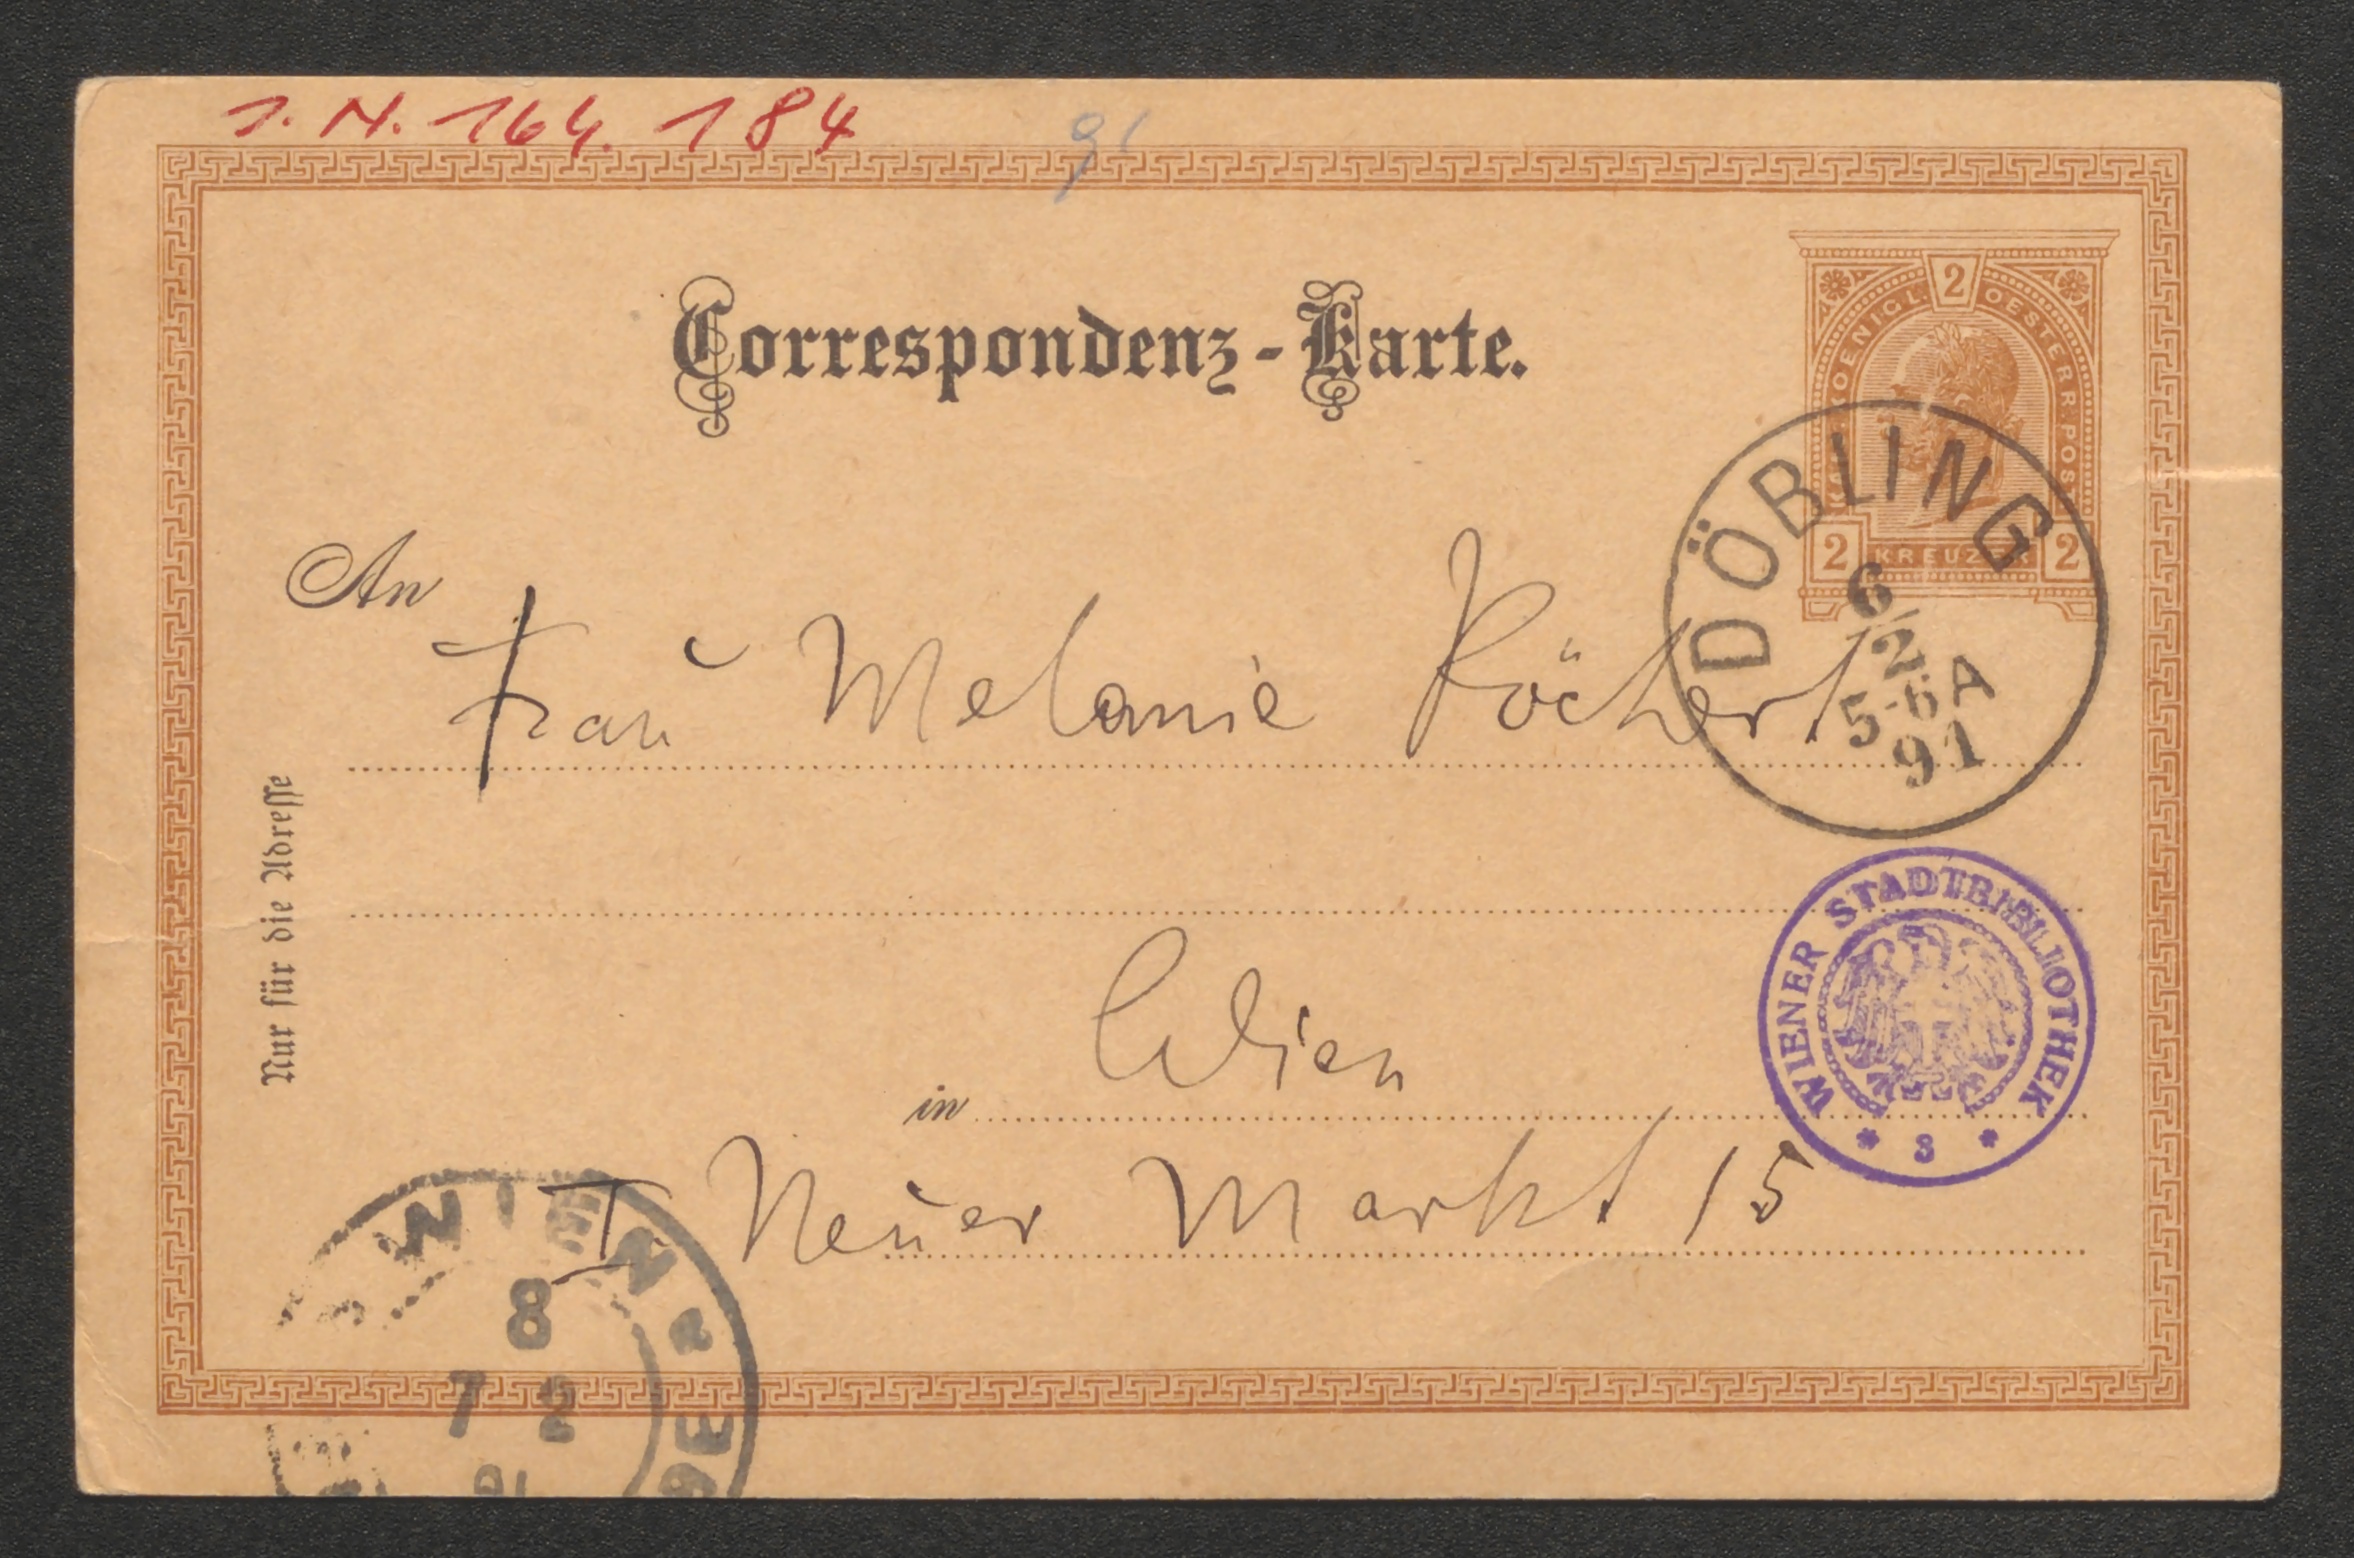 J. N. 164.184
91
Correspondenz-Karte.
2
KAIS. KOENIGL. OESTERR. POST
2 KREUZER 2
DÖBLING
6/2
5-6 A
91
An
Frau Melanie Köchert
Nur für die Adresse
WIENER STADTBIBLIOTHEK
* 3 *
in Wien
I Neuer Markt 15
WIEN
8
7 2
91